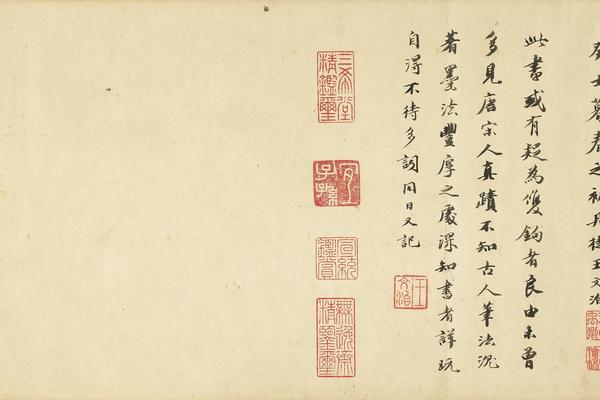 暮春之初丹徒王文治
此書或有疑為雙鈎者良由未曾
多見唐宋人真蹟不知古人筆法沉
著墨法豐厚之處深知書者詳玩
自得不待多詞同日又記
王文治
三希堂精鑑璽
宜子孫
宣統鑑賞
無逸齋精鑒璽